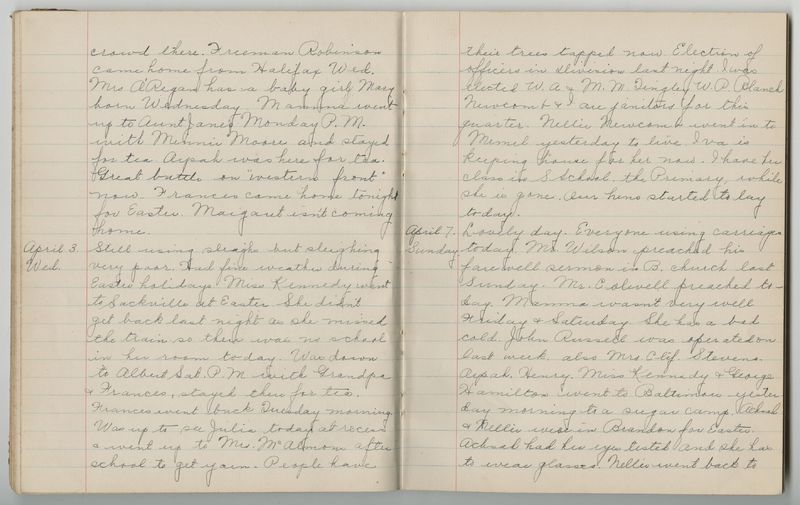 crowd there. Freeman Robinson
came home from Halifax Wed.
Mrs O'Regan has a baby girl Mary
born Wednesday. Mamma went
up to Aunt Janes Monday P.M.
with Minnie Moore and stayed
for tea. Aysah was here for tea.
Great battle on "western front"
now. Frances came home tonight
for Easter. Margaret isn't coming
home.
April 3. Still using sleighs but sleighing
Wed. very poor. Had fine weather during
Easter holidays. Miss Kennedy went
to Sackville at Easter She didn't
get back last night as she missed
the train so there was no school
in her room today. Was down
to Albert Sat. P.M with Grandpa
& Frances, stayed there for tea.
Frances went back Tuesday morning.
Was up to see Julia today at recess
& went up to Mr. McAlmon after
school to get yarn. People have
their trees tapped now. Election of
officers in division last night. I was
elected W. A & M. M. Tingley W. P. Blanch
Newcomb & I are janitors for this
quarter. Nellie Newcomb went in to
Memel yesterday to live. Iva is
keeping house for her now. I have her
class in S School, the Primary, while
she is gone. Our hens started to lay
today.
April 7. Lovely day. Everyone using carriages
Sunday. today. Mr. Wilson preached his
farewell sermon in B. church last
Sunday. Mr. Colwell preached to-
day. Mamma wasn't very well
Friday & Saturday She has a bad
cold. John Russell was operated on
last week. also Mrs Clif. Stevens.
Aysah. Henry. Miss Kennedy & George
Hamilton went to Baltimore yester
day morning to a sugar camp.
& Nellie were in Brandon for Easter.
had her eyes tested and she has
to wear glasses. Nellie went back to